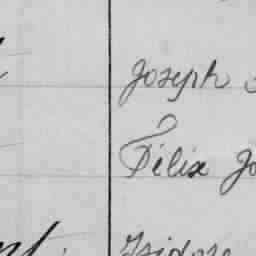 Joseph
Félix Jo
Isidore